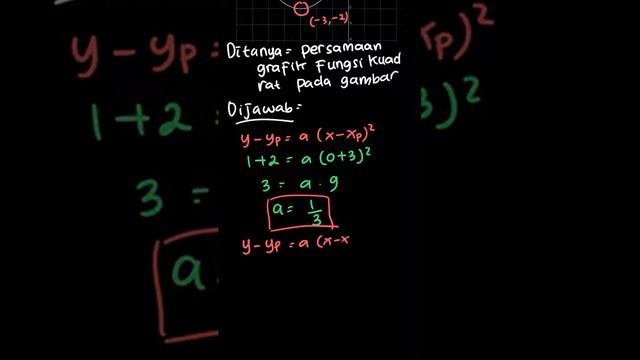 (-3,-2)
Ditanya= persamaan
grafik Fungsi Kuad
rat pada gambar
Dijawab=
y-yp = a (x-xp)²
1+2 = a (0+3)²
3 = a . 9
a = 1/3
y-yp = a (x-x